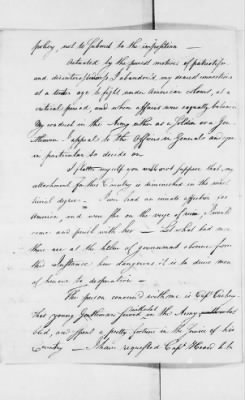 policy, not to submit to the imposition —
Actuated by the purest motives of patriotism
and disinterestedness, I abandon'd my dearest connections
at a tender age to fight under American Arms, at a
critical period, and when affairs were equally balanced.
My conduct in the Army either as a Soldier or a Gen
tleman I appeal to the Officers in General and you
in particular to decide on.
I flatter myself you will not suppose that my
attachment for this Country is diminished in the
degree — I ever had an innate affection for
America, and were she on the verge of ruin, I would
come and perish with her — But what bad men
there are at the helm of government observe from
this instance how dangerous it is to drive men
of honor to desperation —
The person concerned with me is Capt
this young Gentleman served in the Army
and spent a pretty fortune in the service of his
Country — I have requested Capt Heard to